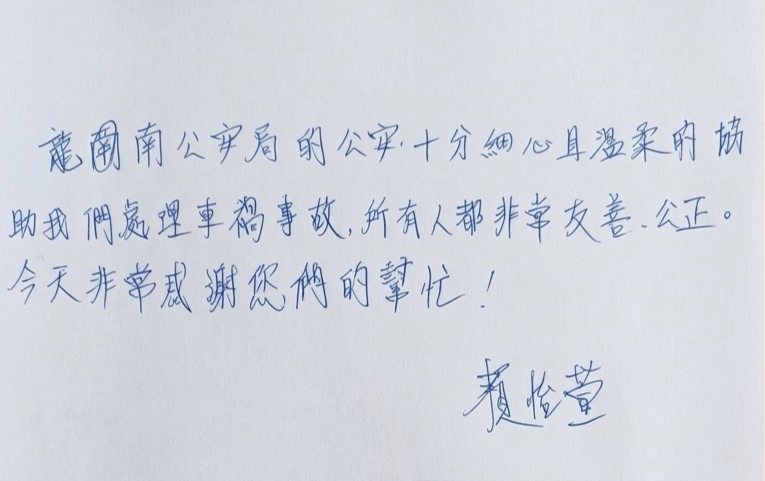 龍圍南公安局的公安十分細心且溫柔的協
助我們處理車禍事故,所有人都非常友善、公正。
今天非常感謝您們的幫忙!
賴怡萱